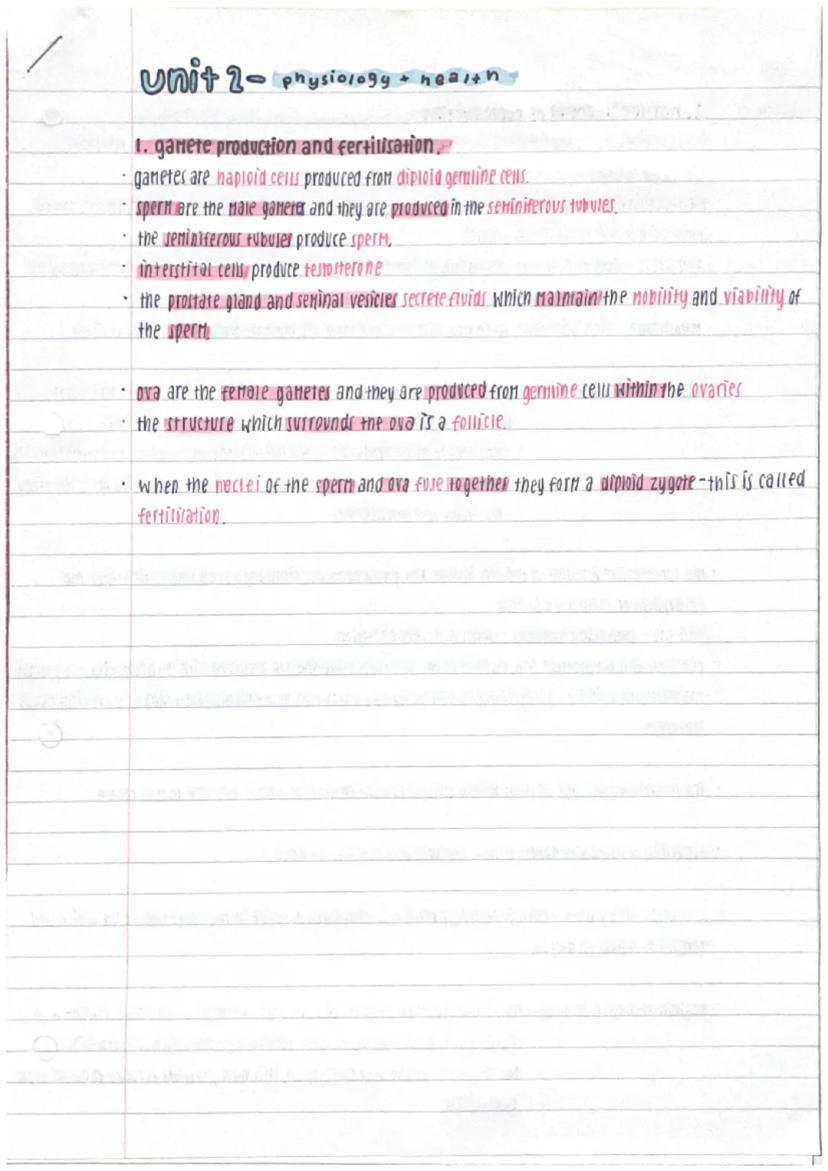 unit 2 - physiology + health
1. gamete production and fertilisation.
· gametes are haploid cells produced from diploid germline cells.
sperm are the male gametes and they are produced in the seminiferous tubules.
· the seminiferous tubules produce sperm.
interstital cells produce testosterone
· the prostate gland and seminal vesicles secrete fluids which maintain the mobility and viability of
the sperm
· ova are the female gametes and they are produced from germline cells within the ovaries
· the structure which surrounds the ova is a follicle.
· when the nuclei of the sperm and ova fuse together they form a diploid zygote - this is called
fertilisation.